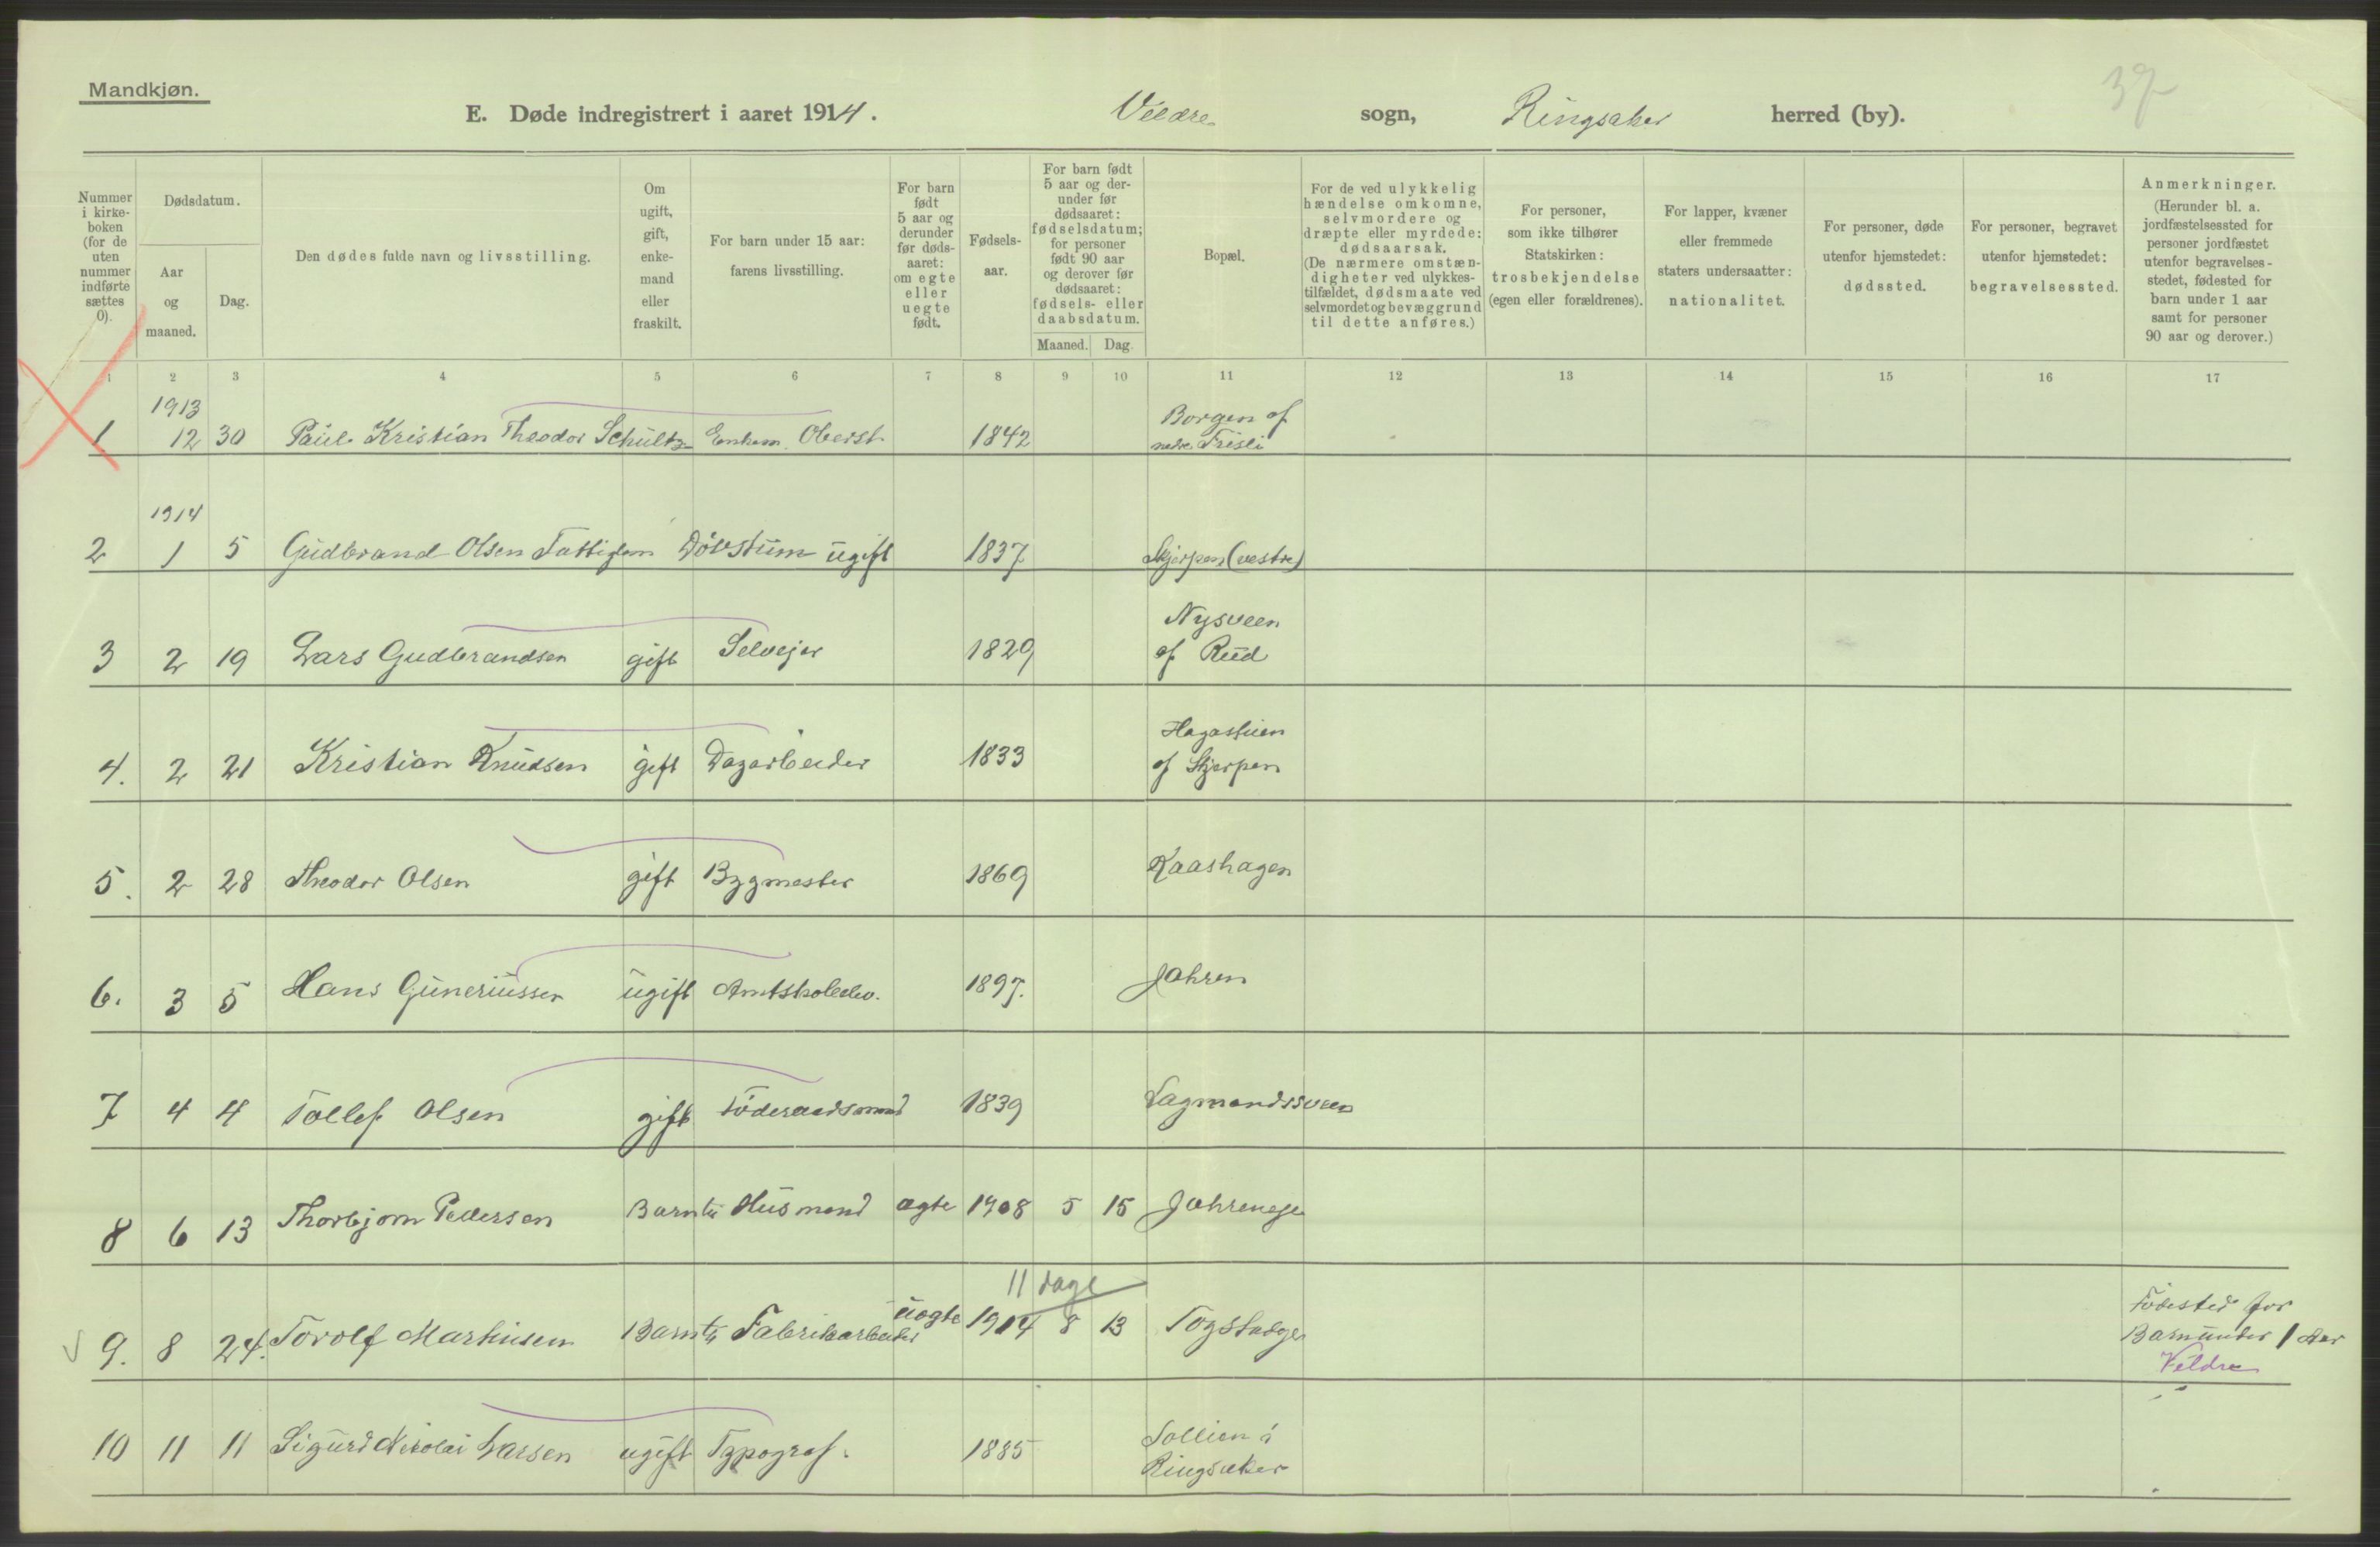 Mandkjøn.
37
E. Døde indregistrert i aaret 1914. Veldre sogn, Ringsaker herred (by).
Nummer i kirke-boken (for de uten nummer indførte sættes 0).
Dødsdatum.
Aar og maaned.
Dag.
Den dødes fulde navn og livsstilling.
Om ugift, gift, enke-mand eller fraskilt.
For barn under 15 aar: farens livsstilling.
For barn født 5 aar og derunder før døds-aaret: om egte eller uegte født.
Fødsels-aar.
For barn født 5 aar og der-under før dødsaaret: fødselsdatum; for personer født 90 aar og derover før dødsaaret: fødsels- eller daabsdatum.
Maaned. Dag.
Bopæl.
For de ved ulykkelig hændelse omkomne, selvmordere og dræpte eller myrdede: dødsaarsak. (De nærmere omstæn-digheter ved ulykkes-tilfældet, dødsmaate ved selvmordet og bevæggrund til dette anføres.)
For personer, som ikke tilhører Statskirken: trosbekjendelse (egen eller forældrenes).
For lapper, kvæner eller fremmede staters undersaatter: nationalitet.
For personer, døde utenfor hjemstedet: dødssted.
For personer, begravet utenfor hjemstedet: begravelsessted.
Anmerkninger. (Herunder bl. a. jordfæstelsessted for personer jordfæstet utenfor begravelses-stedet, fødested for barn under 1 aar samt for personer 90 aar og derover.)
1 2 3 4 5 6 7 8 9 10 11 12 13 14 15 16 17
1913 Borgen af
1 12 30 Paul Kristian Theodor Schultz Enkem. Oberst 1842 nedre Frisli
1914
2 1 5 Gudbrand Olsen Fattiglem Døvstum ugift 1837 Skjerpen (vestre)
Nysveen
3 2 19 Lars Gudbrandsen gift Selvejer 1829 af Rud
Hagastuen
4. 2 21 Kristian Knudsen gift Dagarbeider 1833 af Skjerpen
5. 2 28 Theodor Olsen gift Bygmester 1869 Kaashagen
6. 3 5 Hans Guneriussen ugift Amtskoleelev. 1897. Jahren
7 4 4 Tollef Olsen gift Föderaadsmand 1839 Lagmandssveen
8 6 13 Thorbjørn Pedersen Barn til Husmand ægte 1908 5 15 Jahrenege
11 dage
9. 8 24. Torolf Martinsen Barn til Fabrikarbeider uægte 1914 8 13 Togstadge Födested for
Barn under 1 Aar
Veldre
10 11 11 Sigurd Nikolai Larsen ugift Typograf. 1885 Sollien i
Ringsaker